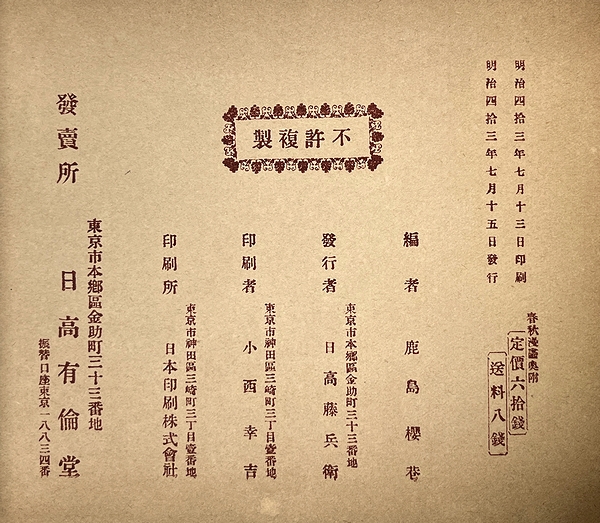 明治四拾三年七月十三日印刷
明治四拾三年七月十五日發行
春秋漫譫奥附
定價六拾錢
送料八錢
不許複製
編者 鹿島櫻巷
東京市本鄉區金助町三十三番地
發行者 日高藤兵衛
東京市神田區三崎町三丁目壹番地
印刷者 小西幸吉
東京市神田區三崎町三丁目壹番地
印刷所 日本印刷株式會社
東京市本鄉區金助町三十三番地
發賣所 日高有倫堂
振替口座東京一八八三四番